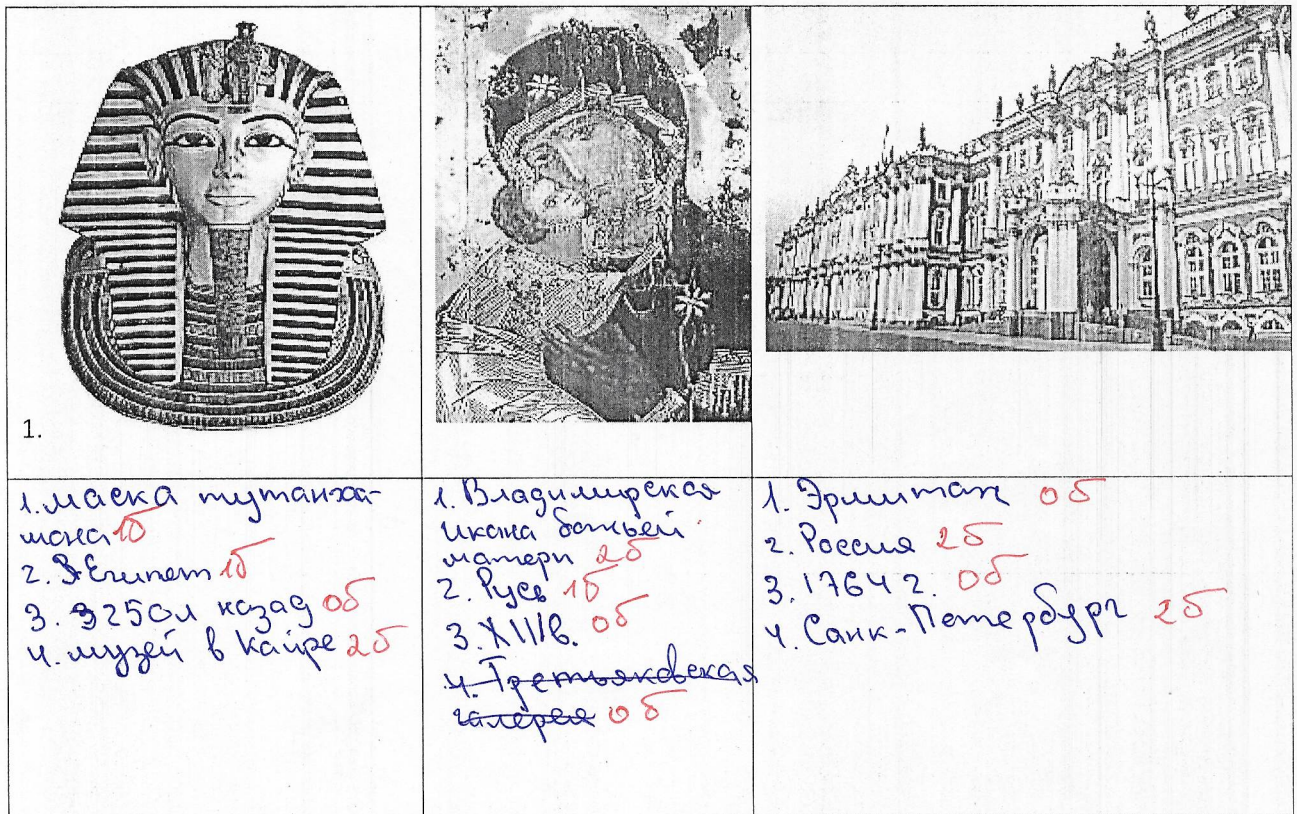 1.
1. маска тутанха-
мона 1б
2. Египет 1б
3. 3250л назад 0б
4. музей в Каире 2б
1. Владимирская
икона божьей
матери 2б
2. Русь 1б
3. XIIIв. 0б
4. Третьяковская
галерея 0б
1. Эрмитаж 0б
2. Россия 2б
3. 1764 г. 0б
4. Санк-Петербург 2б